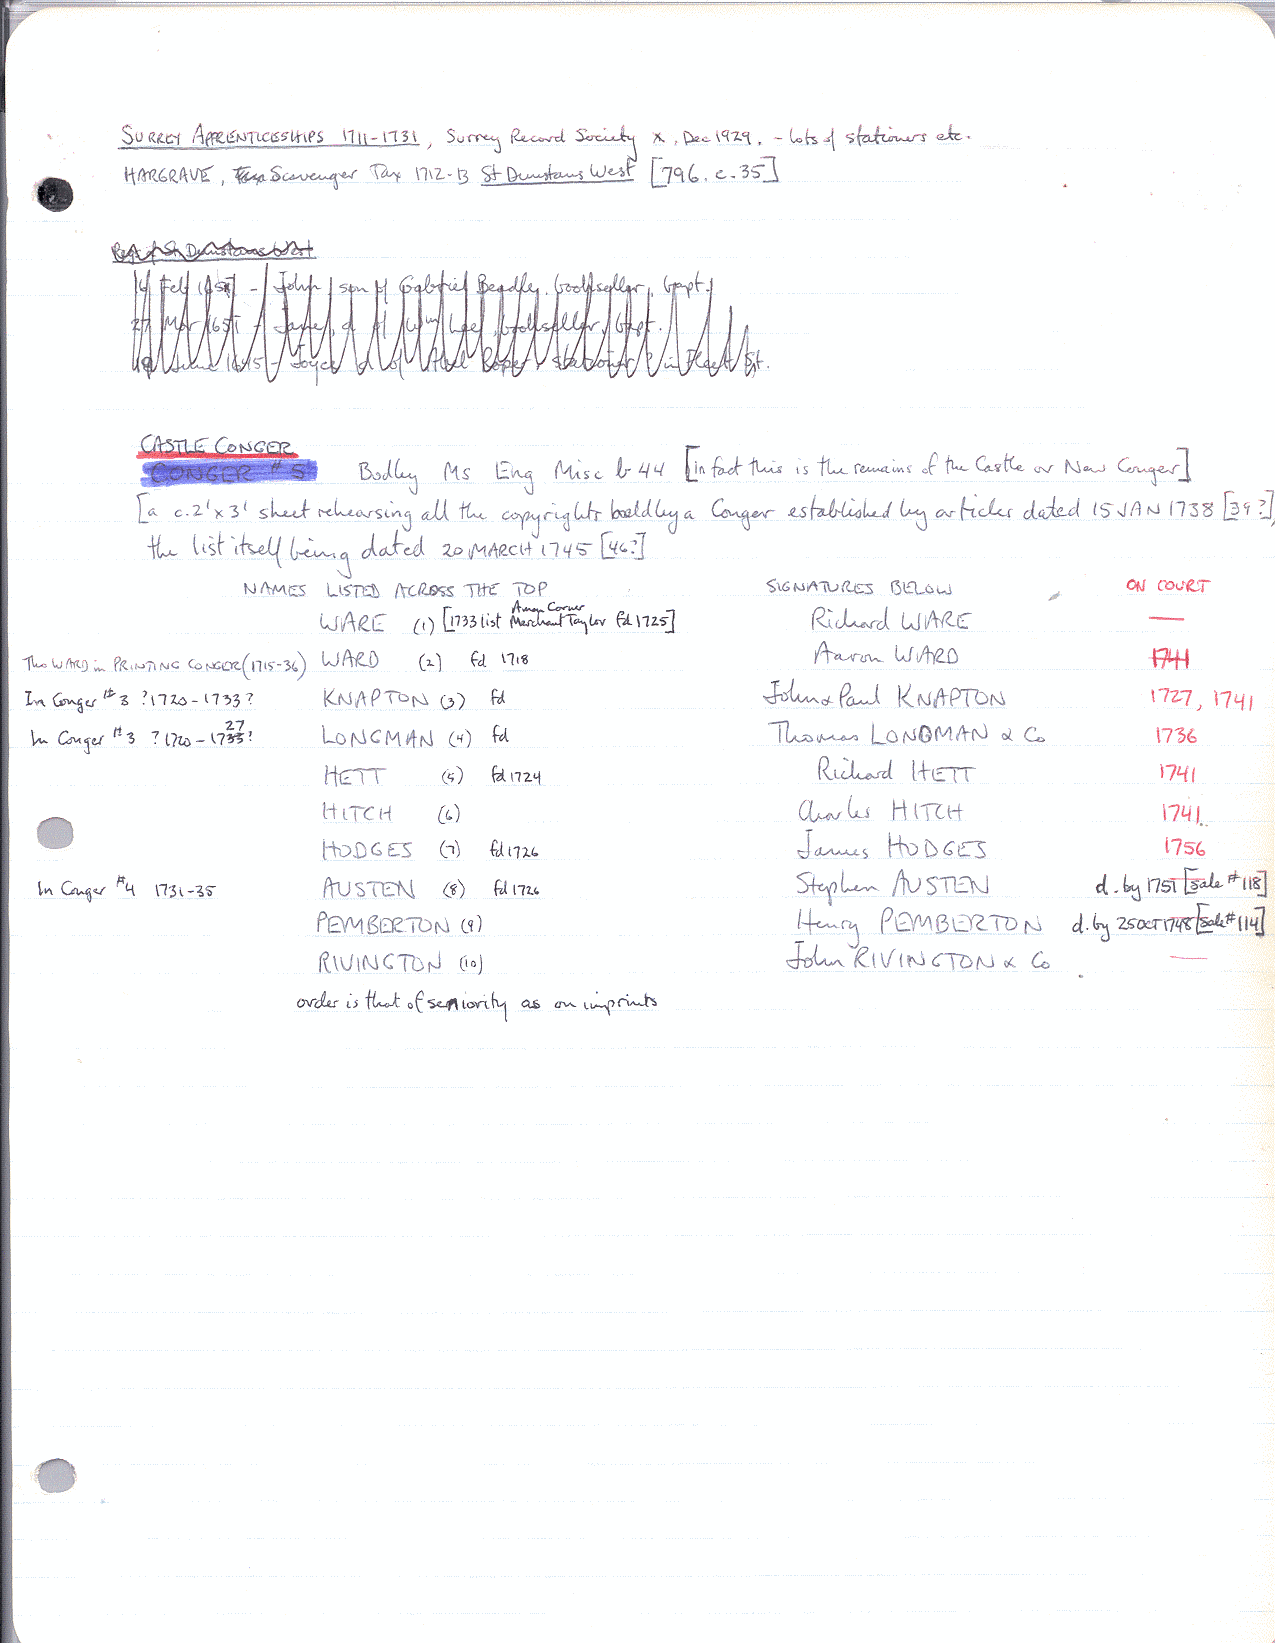 SURREY APPRENTICESHIPS 1711-1731, Surrey Record Society X, Dec 1929, - lots of stationers etc.
HARGRAVE, Scavenger Tax 1712-13 St Dunstans West [796. e. 35]
Reg of St Dunstans West
16 Feb - John son of Gabriel Beadley, bookseller, bapt.
27 Mar 1651 - James, of bookseller, bapt.
June 1615 - Joyce d of Abel Roper, stationer in Fleet St.
CASTLE CONGER
CONGER #5 Bodley Ms Eng Misc b 44 [in fact this is the remains of the Castle or New Conger]
[a c. 2'x3' sheet rehearsing all the copyrights held by a Conger established by articles dated 15 JAN 1738 [39?],
the list itself being dated 20 MARCH 1745 [46?]
NAMES LISTED ACROSS THE TOP SIGNATURES BELOW ON COURT
WARE (1) [1733 list Amen Corner Merchant Taylor fd 1725] Richard WARE —
Thos WARD in PRINTING CONGER (1715-36) WARD (2) fd 1718 Aaron WARD 1741
In Conger #3 ?1720-1733? KNAPTON (3) fd John & Paul KNAPTON 1727, 1741
In Conger #3 ?1720-1733 27? LONGMAN (4) fd Thomas LONGMAN & Co 1736
HETT (5) fd 1724 Richard HETT 1741
HITCH (6) Charles HITCH 1741
HODGES (7) fd 1726 James HODGES 1756
In Conger #4 1731-35 AUSTEN (8) fd 1726 Stephen AUSTEN d. by 1751 [sale #118]
PEMBERTON (9) Henry PEMBERTON d. by 25 OCT 1748 [sale #114]
RIVINGTON (10) John RIVINGTON & Co —
order is that of seniority as on imprints